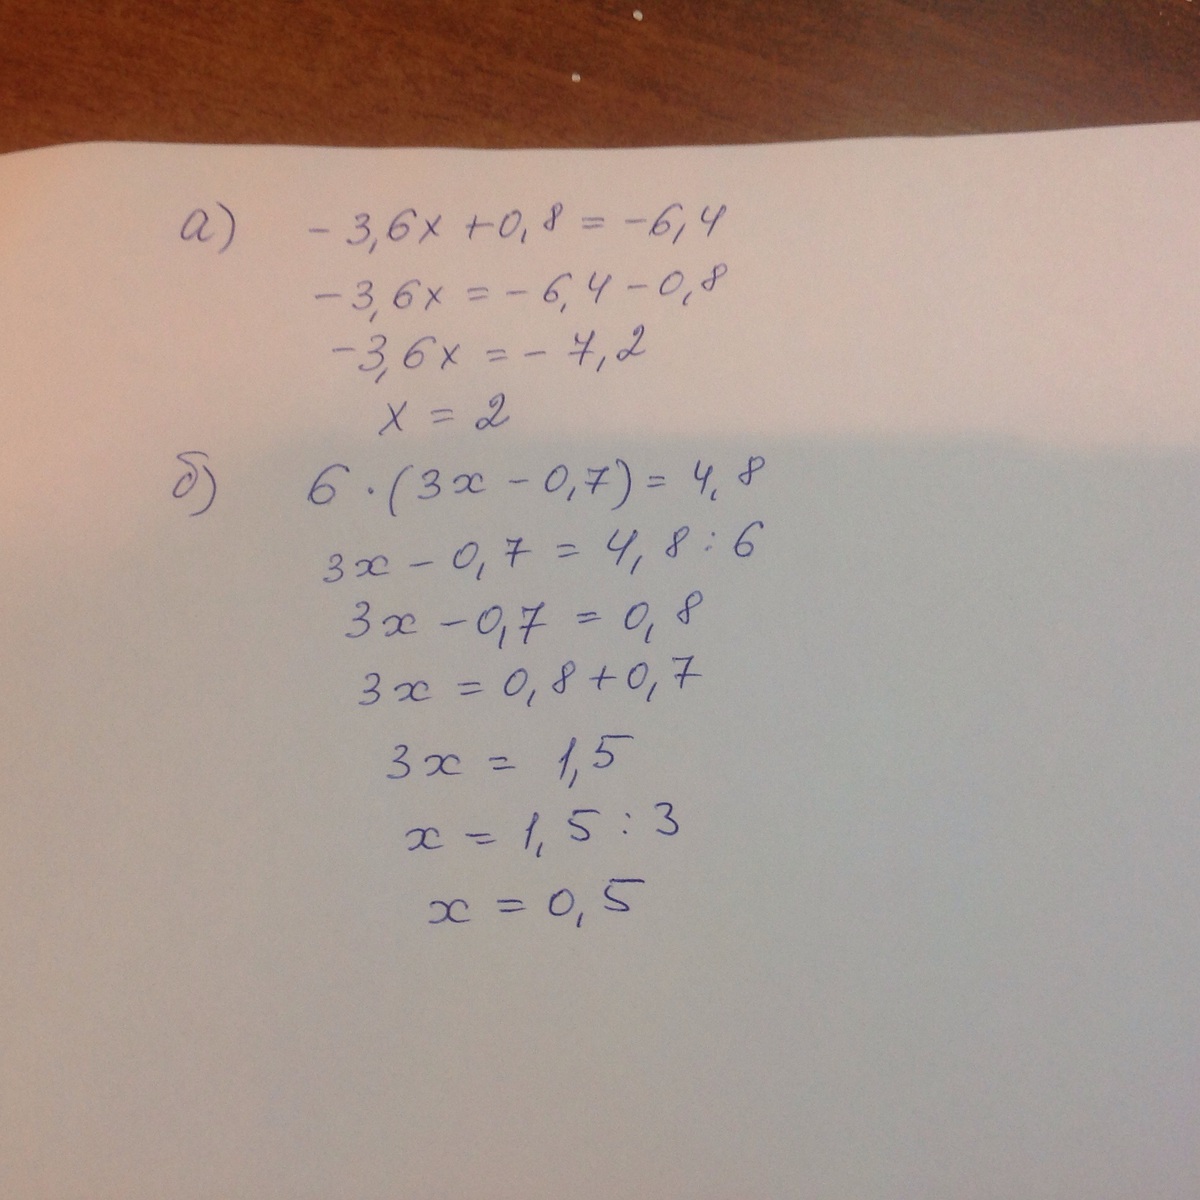 а) -3,6x+0,8=-6,4
-3,6x=-6,4-0,8
-3,6x=-7,2
x=2
б) 6·(3x-0,7)=4,8
3x-0,7=4,8:6
3x-0,7=0,8
3x=0,8+0,7
3x=1,5
x=1,5:3
x=0,5